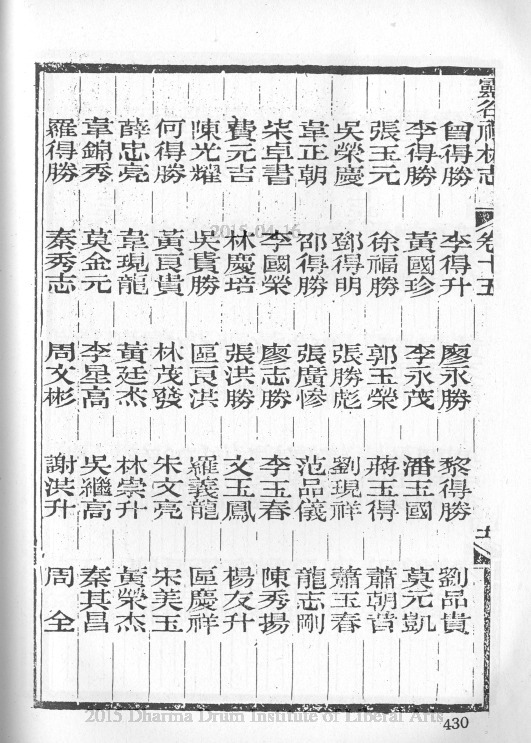 靈谷禪林志 卷十五 十
曾得勝 李得升 廖永勝 黎得勝 劉品貴
李得勝 黃國珍 李永茂 潘玉國 莫元凱
張玉元 徐福勝 郭玉榮 蔣玉得 蕭朝貴
吳榮慶 鄧得明 張勝彪 劉現祥 蕭玉春
韋正朝 邵得勝 張廣惨 范品儀 龍志剛
柒卓書 李國榮 廖志勝 李玉春 陳秀揚
費元吉 林慶培 張洪勝 文玉鳳 楊友升
陳光耀 吳貴勝 區良洪 羅義龍 區慶祥
何得勝 黃良貴 林茂發 朱文亮 宋美玉
薛忠亮 韋現龍 黃廷杰 林崇升 黃榮杰
韋錦秀 莫金元 李星高 吳繼高 秦其昌
羅得勝 秦秀志 周文彬 謝洪升 周全
430
2015 Dharma Drum Institute of Liberal Arts